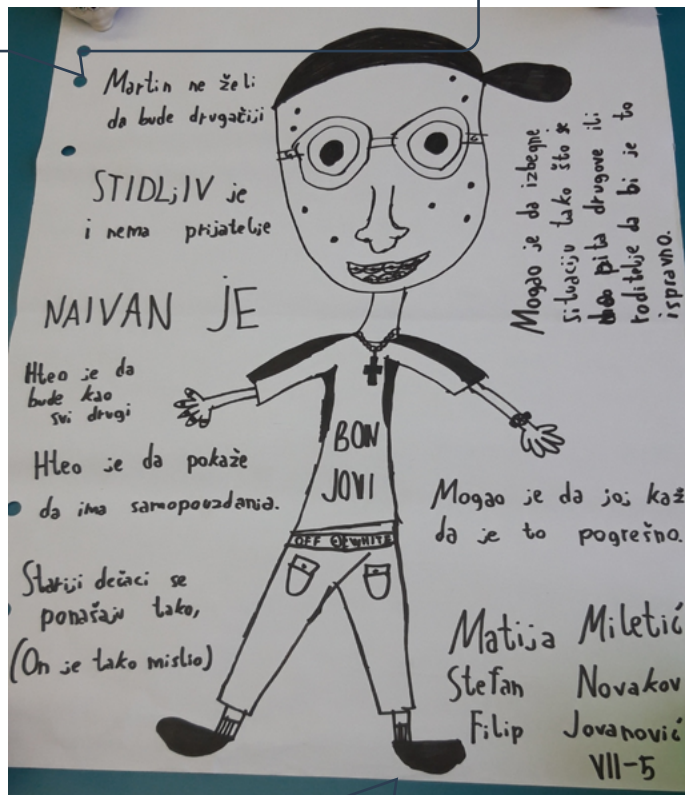 Martin ne želi
da bude drugačiji
STIDLjIV je
i nema prijatelje
NAIVAN JE
Hteo je da
bude kao
svi drugi
Hteo je da pokaže
da ima samopouzdanja.
Stariji dečaci se
ponašaju tako,
(On je tako mislio)
BON
JOVI
OFF WHITE
Mogao je da izbegne
situaciju tako što je
pita drugove ili
roditelje da bi je to
ispravno.
Mogao je da joj kaž
da je to pogrešno.
Matija Miletić
Stefan Novakov
Filip Jovanović
VII-5